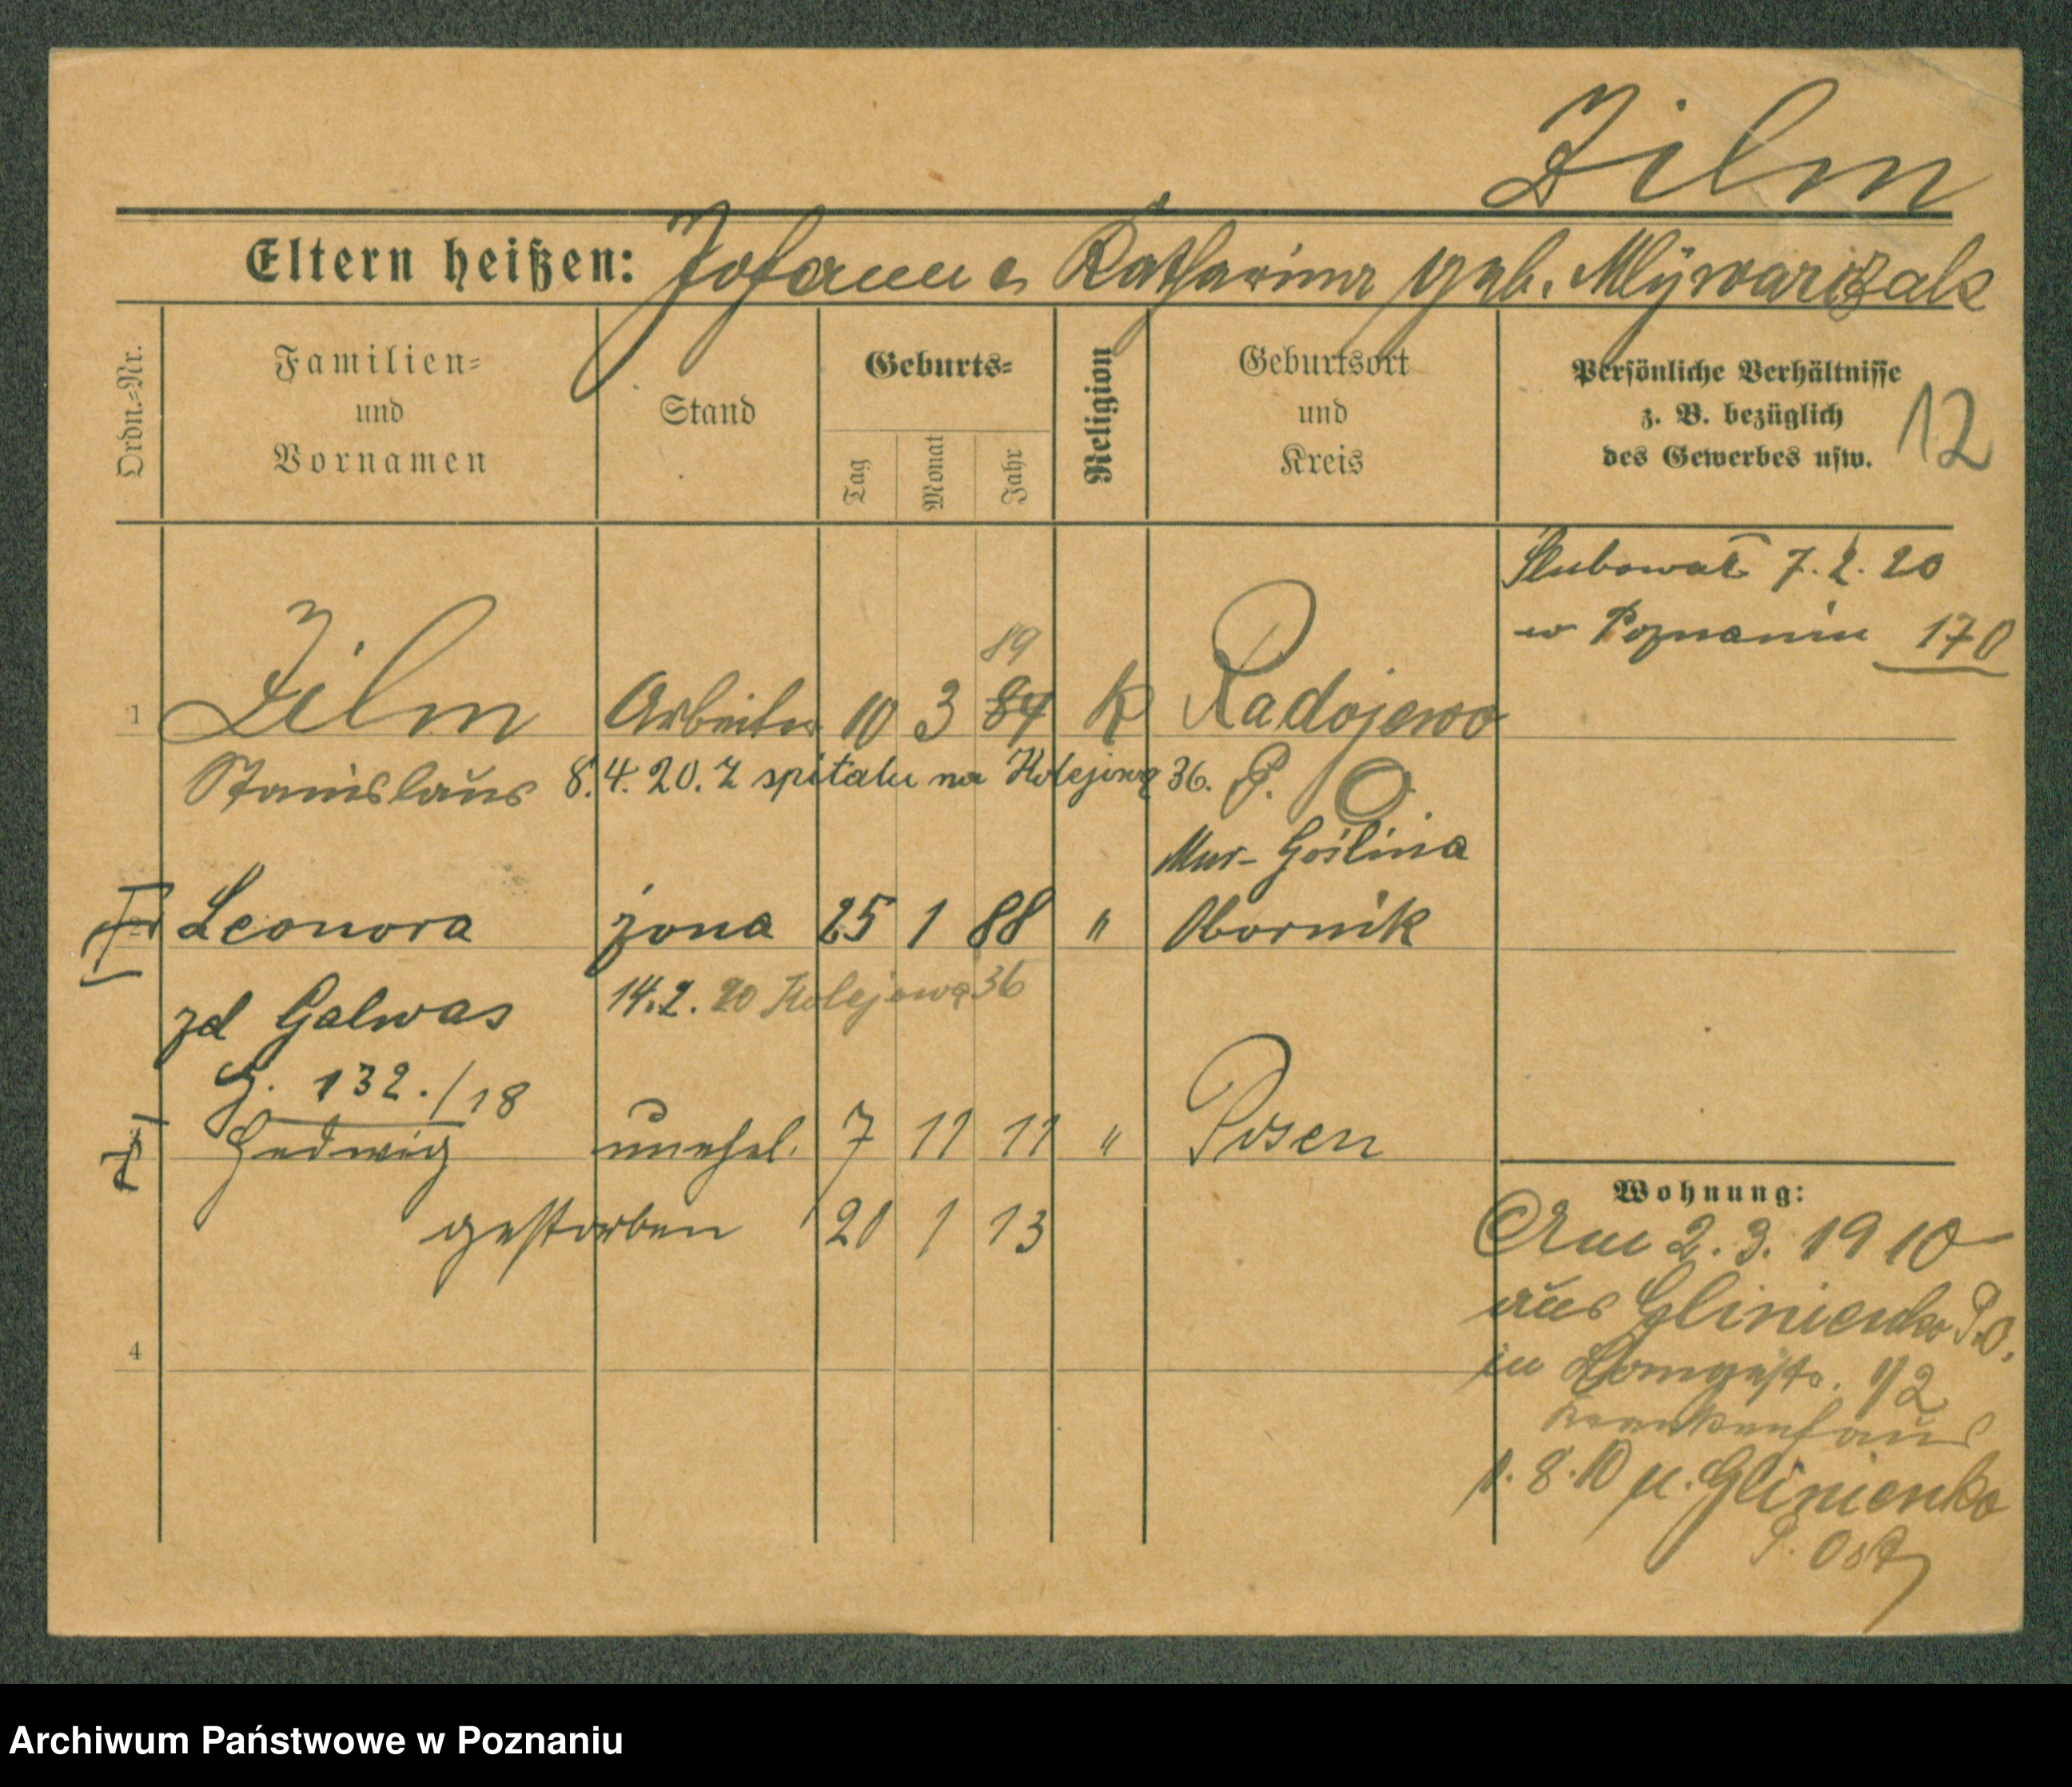 Zilm
Eltern heißen: Johann e Katharina geb. Mlÿwarczak
Ordn.-Nr.
Familien-
und
Vornamen
Stand
Geburts-
Tag
Monat
Jahr
Religion
Geburtsort
und
Kreis
Persönliche Verhältnisse
z. B. bezüglich
des Gewerbes usw.
12
Slubował 7.2.20
w Poznaniu 170
89
1 Zilm Arbeiter 10 3 84 K Radojewo
Stanislaus 8.4.20. Z spitalu na Kolejową 36. P. O
Mur- Goślina
Leonora żona 25 1 88 " Obornik
14.2.20 Kolejowa 36
zd Galwas
G. 132./18
Hedwig unehel. 7 11 11 " Posen
gestorben 20 1 13
Wohnung:
Am 2.3.1910
aus Glinienko P.O.
4
in 1/2
Krankenhaus
1.8.10 n. Glinienko
P. Ost
Archiwum Państwowe w Poznaniu